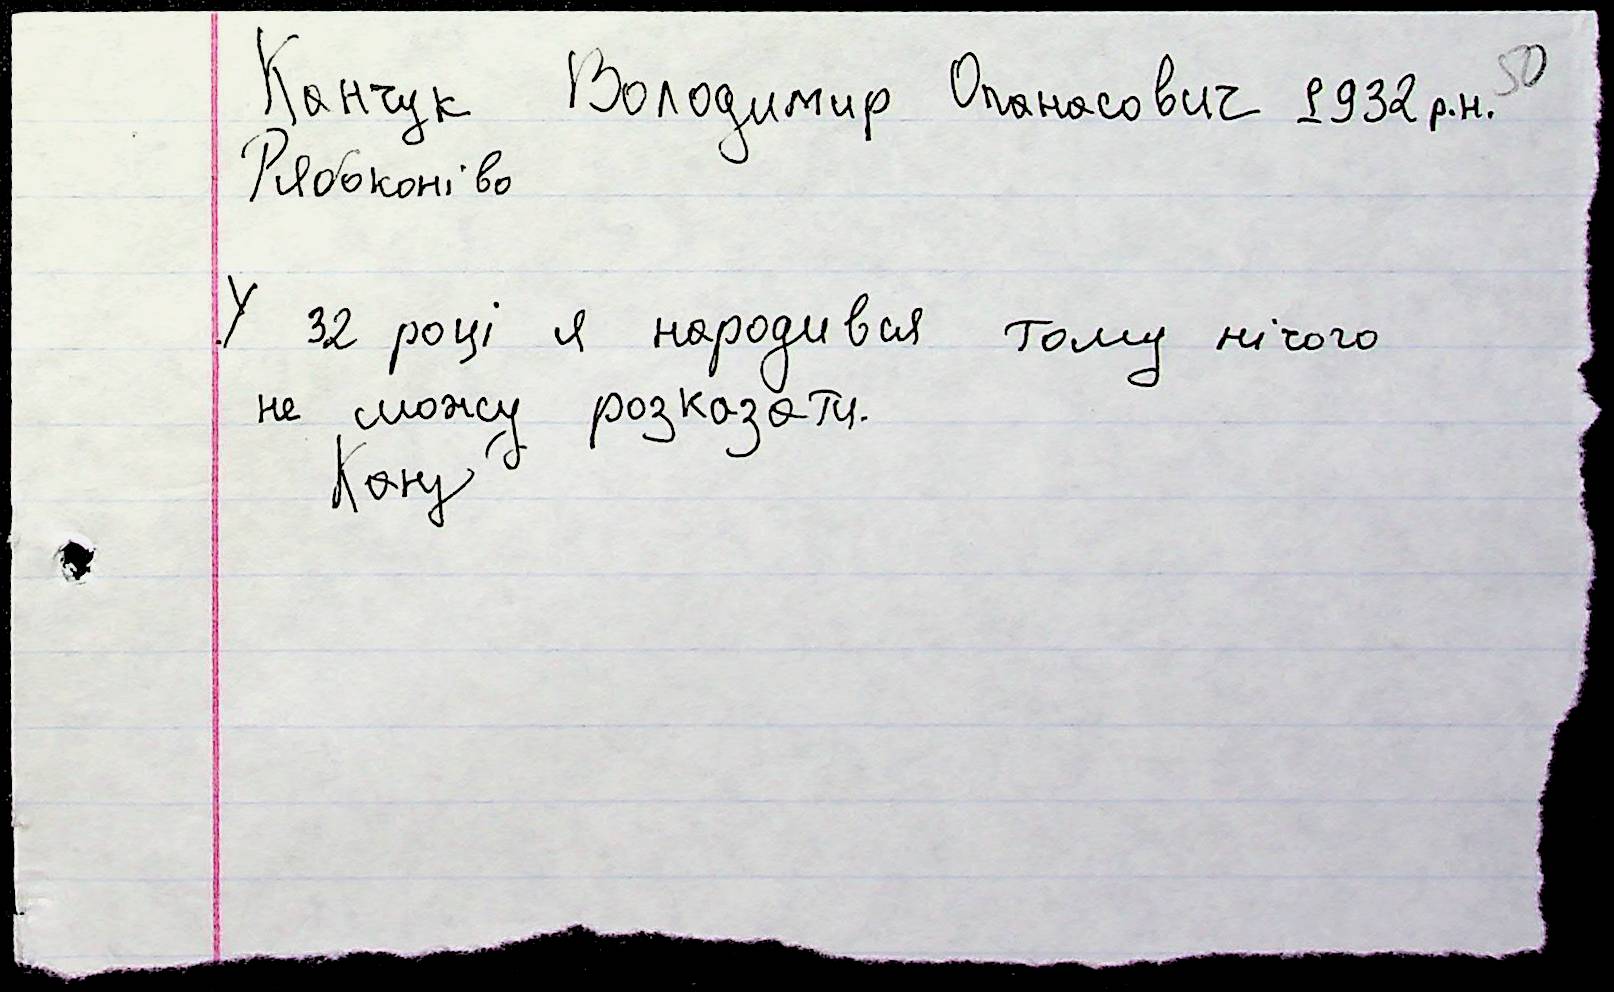 Канчук Володимир Опанасович 1932 р.н. 50
Рябоконіво
У 32 році я народився тому нічого
не можу розказати.